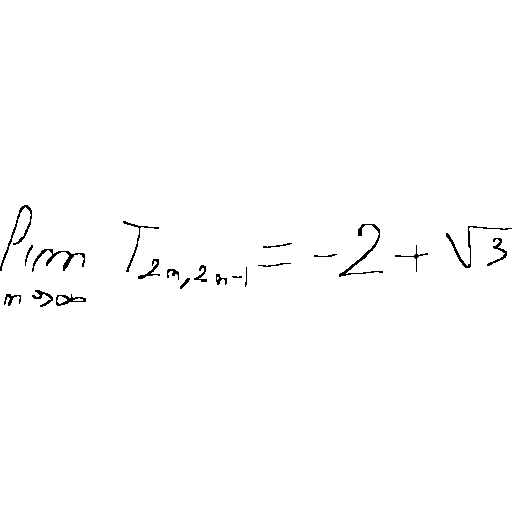 \lim_{n \to \infty} T_{2n,2n-1} = -2 + \sqrt{3}